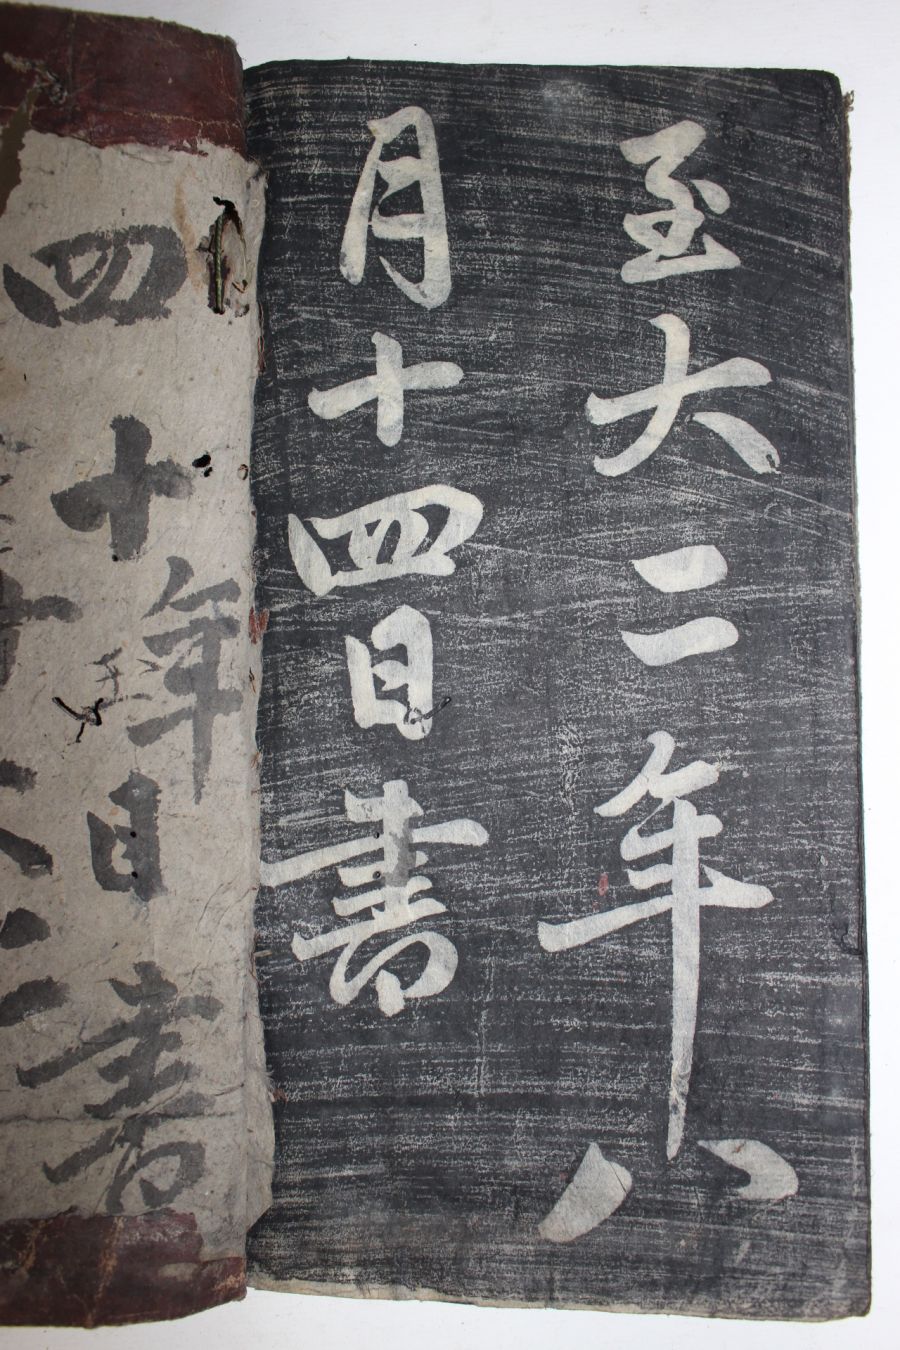 至大二年八
月十四日書
年
四十日書